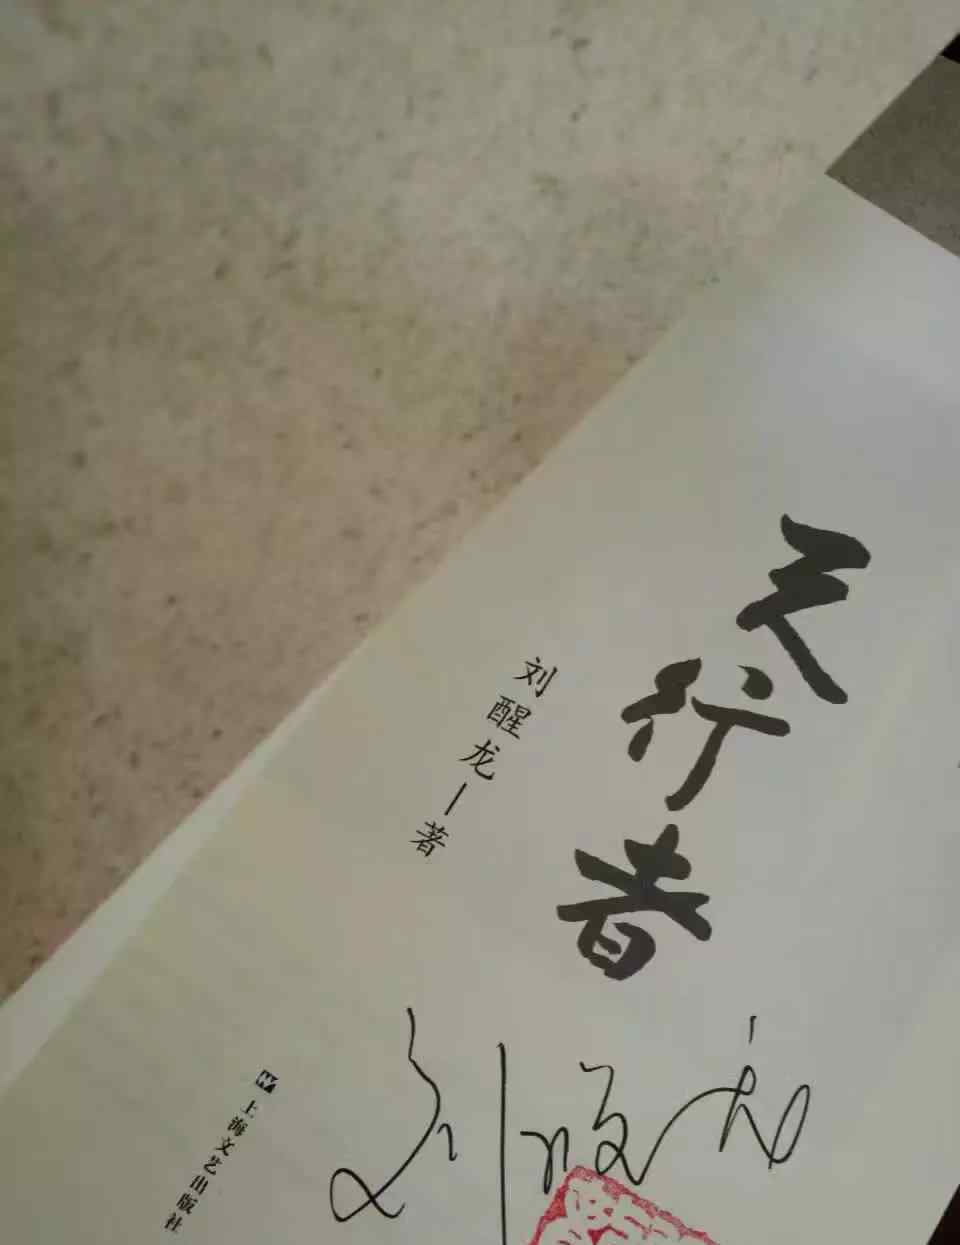 天行者
刘醒龙|著
刘醒龙
上海文艺出版社